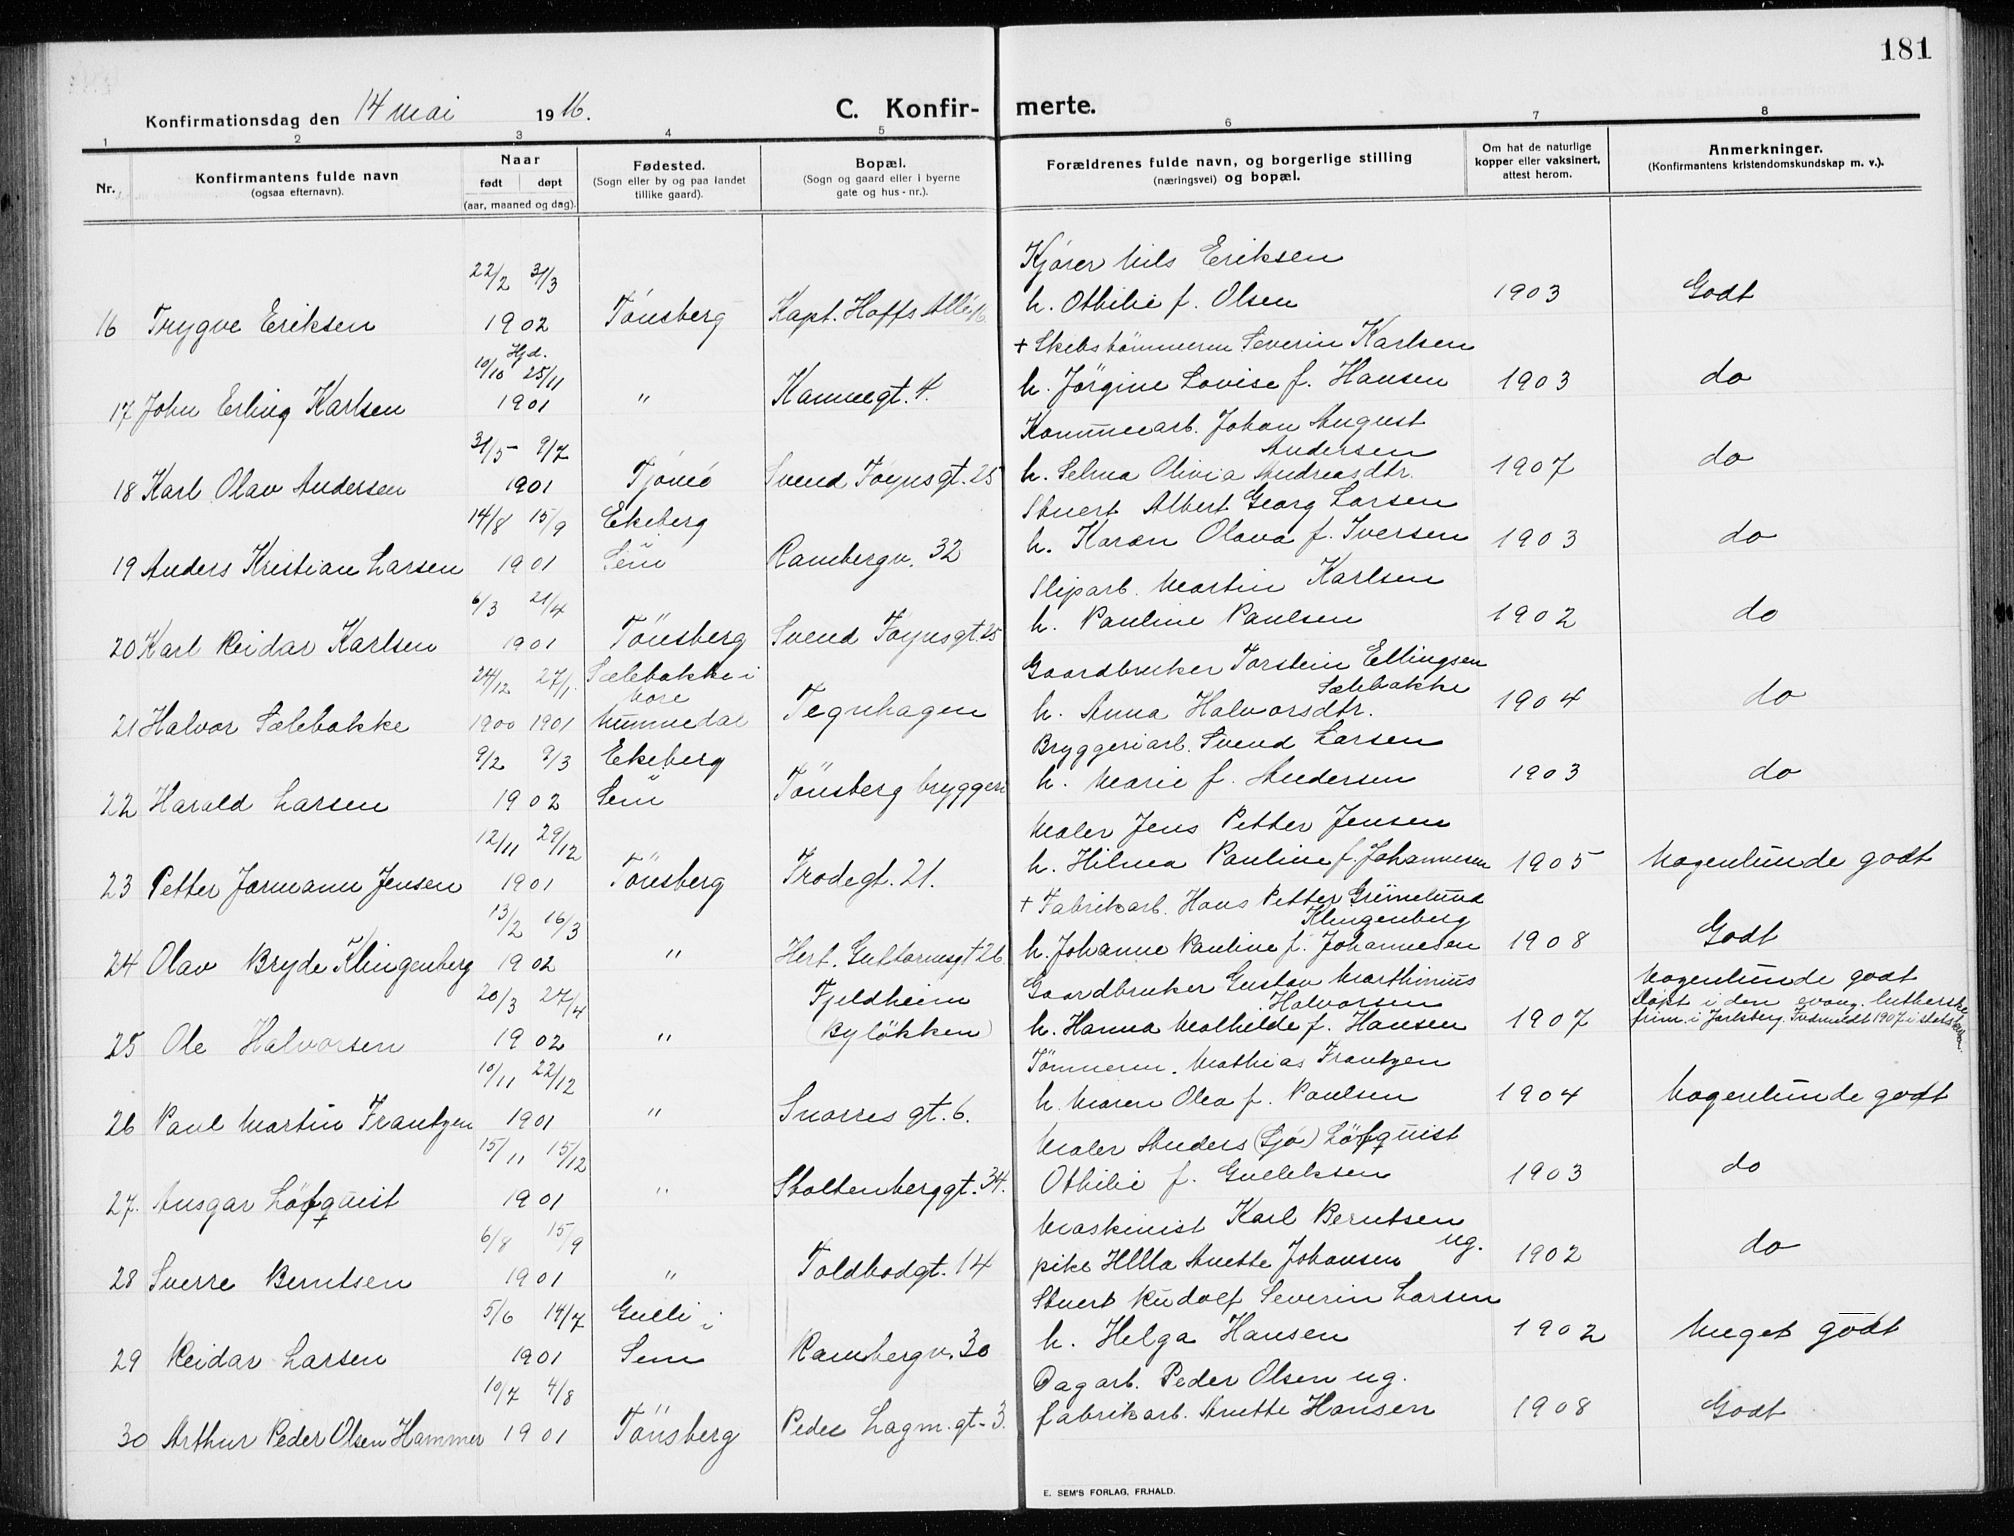 181
Konfirmationsdag den 14 mai 1916.
C. Konfirmerte.
1 2 3 4 5 6 7 8
Nr.
Konfirmantens fulde navn
(ogsaa efternavn).
Naar
født døpt
(aar, maaned og dag).
Fødested.
(Sogn eller by og paa landet
tillike gaard).
Bopæl.
(Sogn og gaard eller i byerne
gate og hus-nr.).
Forældrenes fulde navn, og borgerlige stilling
(næringsvei) og bopæl.
Om hat de naturlige
kopper eller vaksinert,
attest herom.
Anmerkninger.
(Konfirmantens kristendomskundskap m. v.).
22/2 31/3 Kjører Nils Eriksen
16 Trygve Eriksen 1902 Tönsberg Kapt. Hoffs Allé 16. h. Othilie f. Olsen 1903 Godt
Hjd.
10/10 25/11 + Skibstömmerm Severin Karlsen
17 John Erling Karlsen 1901 " Kannegt. 4. h. Jörgine Lovise f. Hansen 1903 do
31/5 - 9/7 Kommunearb. Johan August
Andersen
18 Karl Olav Andersen 1901 Tjömö Svend Foynsgt. 25 h. Selma Olivia Andreasdtr. 1907 do
14/8 15/9 Ekeberg Stuert Albert Georg Larsen
19 Anders Kristian Larsen 1901 Sem Rambergv. 32 h. Karen Olava f. Iversen 1903 do
6/3 21/4 Sliparb. Martin Karlsen
20 Karl Reidar Karlsen 1901 Tönsberg Svend Foynsgt 25 h. Pauline Paulsen 1902 do
24/12 27/1. Sælebakke i Gaardbruker Torstein Ellingsen
Nore Sælebakke
21 Halvor Sælebakke 1900 1901 Numedal Tegnhagen h. Anna Halvorsdtr. 1904 do
9/2 9/3 Ekeberg Bryggeriarb. Svend Larsen
22 Harald Larsen 1902 Sem Tönsberg bryggeri h. Marie f. Andersen 1903 do
12/11 29/12 Maler Jens Petter Jensen
23 Petter Jarmann Jensen 1901 Tönsberg Frodegt. 21. h. Hilma Pauline f. Johannesen 1905 Nogenlunde godt
13/2 16/3 + Fabrikarb. Hans Petter Grünelund
Klingenberg
24 Olav Bryde Klingenberg 1902 " Hert. Guttormsgt 26. h. Johanne Pauline f. Johannesen 1908 Godt
20/3 27/4 Fjeldheim Gaardbruker Gustav Marthinius
Halvorsen
25 Ole Halvorsen 1902 " (Byløkken) h. Hanna Mathilde f. Hansen 1907 Nogenlunde godt
Döpt i den evang. lutherske
frim. i Jarlsberg. Indmeldt 1907 i statskirken.
10/11 22/12 Tömmerm. Mathias Frantzen
26 Paul Martin Frantzen 1901 " Snorres gt. 6. h. Maren Olea f. Paulsen 1904 Nogenlunde godt
15/11 15/12 Maler Anders (Sjö) Löfquist
27. Ansgar Löfquist 1901 " Stoltenberggt. 34. Othilie f. Gulliksen 1903 do
6/8 15/9 Maskinist Karl Berntsen
ug.
28 Sverre Berntsen 1901 " Toldbodgt. 14 pike Hilla Anette Johansen 1902 do
5/6 14/7 Gulli i Stuert Rudolf Severin Larsen
29 Reidar Larsen 1901 Sem Rambergv. 30 h. Helga Hansen 1902 Meget godt
10/7 4/8 Dagarb. Peder Olsen ug.
30 Arthur Peder Olsen Hammer 1901 Tönsberg Peder Lagm. gt. 3. fabrikarb. Anette Hansen 1908 Godt
E. SEM'S FORLAG, FR.HALD.